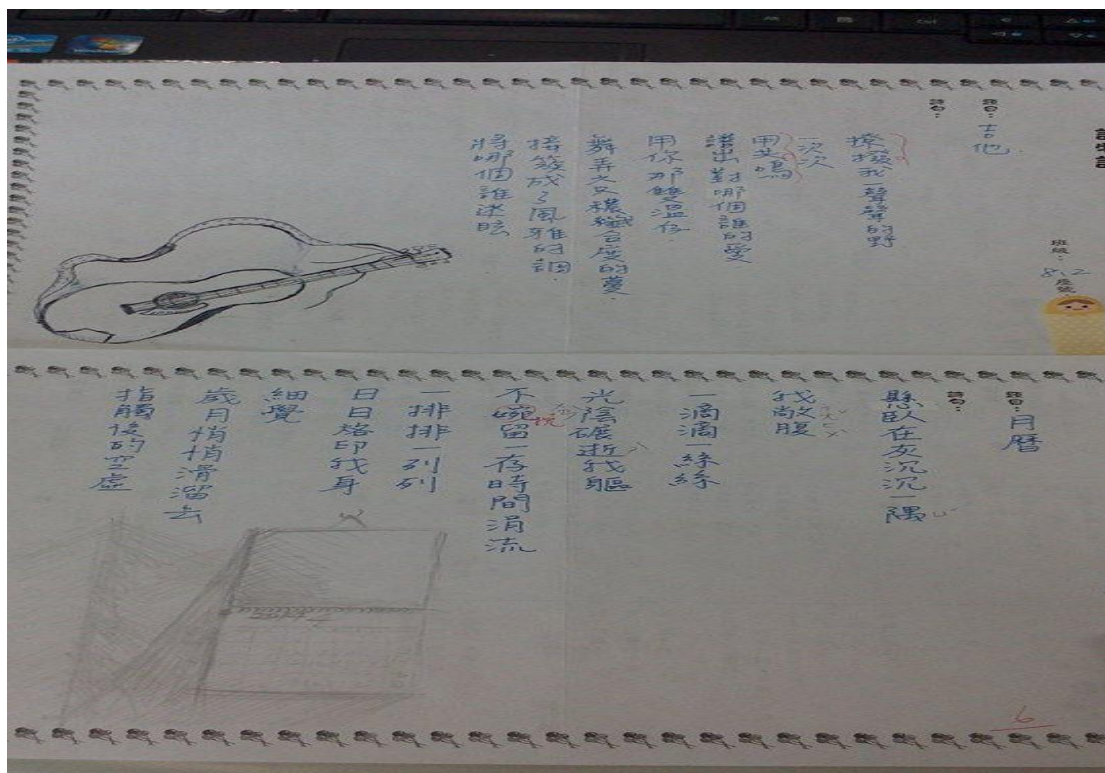 班級：812 座號：
題目：吉他
詩句：
撩撥我一聲聲的野
一次次
用
譜出對哪個誰的愛
用你那雙溫存
舞弄之又穠纖合度的蔓
接簇成了風雅的調
將哪個誰迷眩
題目：月曆
詩句：
懸臥在灰沉沉一隅
我敞腹
一滴滴一絲絲
光陰碾逝我軀
不婉留一存時間涓流
挽
一排排一列列
日日烙印我身
細覺
歲月悄悄滑溜去
指觸後的空虛
6